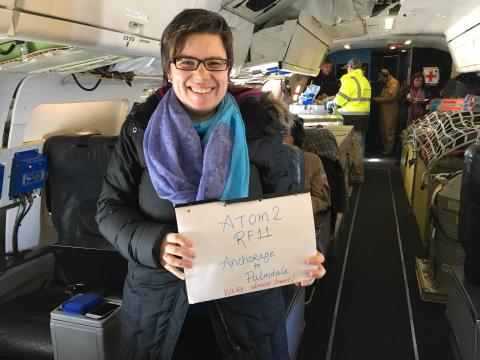 ATom2
RF11
Anchorage
to
Palmdale
We're almost home!